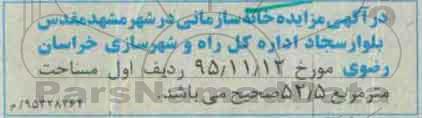 در آگهی مزایده خانه سازمانی در شهر مشهد مقدس
بلوار سجاد اداره کل راه و شهرسازی خراسان
رضوی مورخ ۹۵/۱۱/۱۲ ردیف اول مساحت
مترمربع ۵۲/۵ صحیح می باشد.
۹۵۳۲۸۳۶۴/م
ParsNamadData